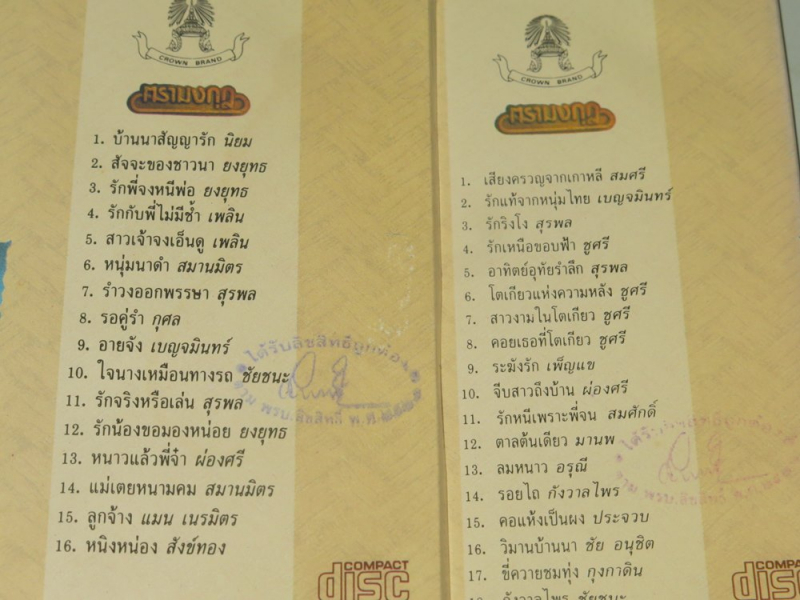 CROWN BRAND
ตรามงกุฎ
1. บ้านนาสัญญารัก นิยม
2. สัจจะของชาวนา ยงยุทธ
3. รักพี่จงหนีพ่อ ยงยุทธ
4. รักกับพี่ไม่มีช้ำ เพลิน
5. สาวเจ้าจงเอ็นดู เพลิน
6. หนุ่มนาดำ สมานมิตร
7. รำวงออกพรรษา สุรพล
8. รอคู่รำ กุศล
9. อายจัง เบญจมินทร์
10. ใจนางเหมือนทางรถ ชัยชนะ
11. รักจริงหรือเล่น สุรพล
12. รักน้องขอมองหน่อย ยงยุทธ
13. หนาวแล้วพี่จ๋า ผ่องศรี
14. แม่เตยหนามคม สมานมิตร
15. ลูกจ้าง แมน เนรมิตร
16. หนิงหน่อง สังข์ทอง
COMPACT
disc
ได้รับลิขสิทธิ์ถูกต้อง
CROWN BRAND
ตรามงกุฎ
1. เสียงครวญจากเกาหลี สมศรี
2. รักแท้จากหนุ่มไทย เบญจมินทร์
3. รักริงโง สุรพล
4. รักเหนือขอบฟ้า ชูศรี
5. อาทิตย์อุทัยรำลึก สุรพล
6. โตเกียวแห่งความหลัง ชูศรี
7. สาวงามในโตเกียว ชูศรี
8. คอยเธอที่โตเกียว ชูศรี
9. ระฆังรัก เพ็ญแข
10. จีบสาวถึงบ้าน ผ่องศรี
11. รักหนีเพราะพี่จน สมศักดิ์
12. ตาลต้นเดียว มานพ
13. ลมหนาว อรุณี
14. รอยไถ กังวาลไพร
15. คอแห้งเป็นผง ประจวบ
16. วิมานบ้านนา ชัย อนุชิต
17. ขี่ควายชมทุ่ง กุงกาดิน
กังวาลไพร ชัยชนะ
COMPACT
disc